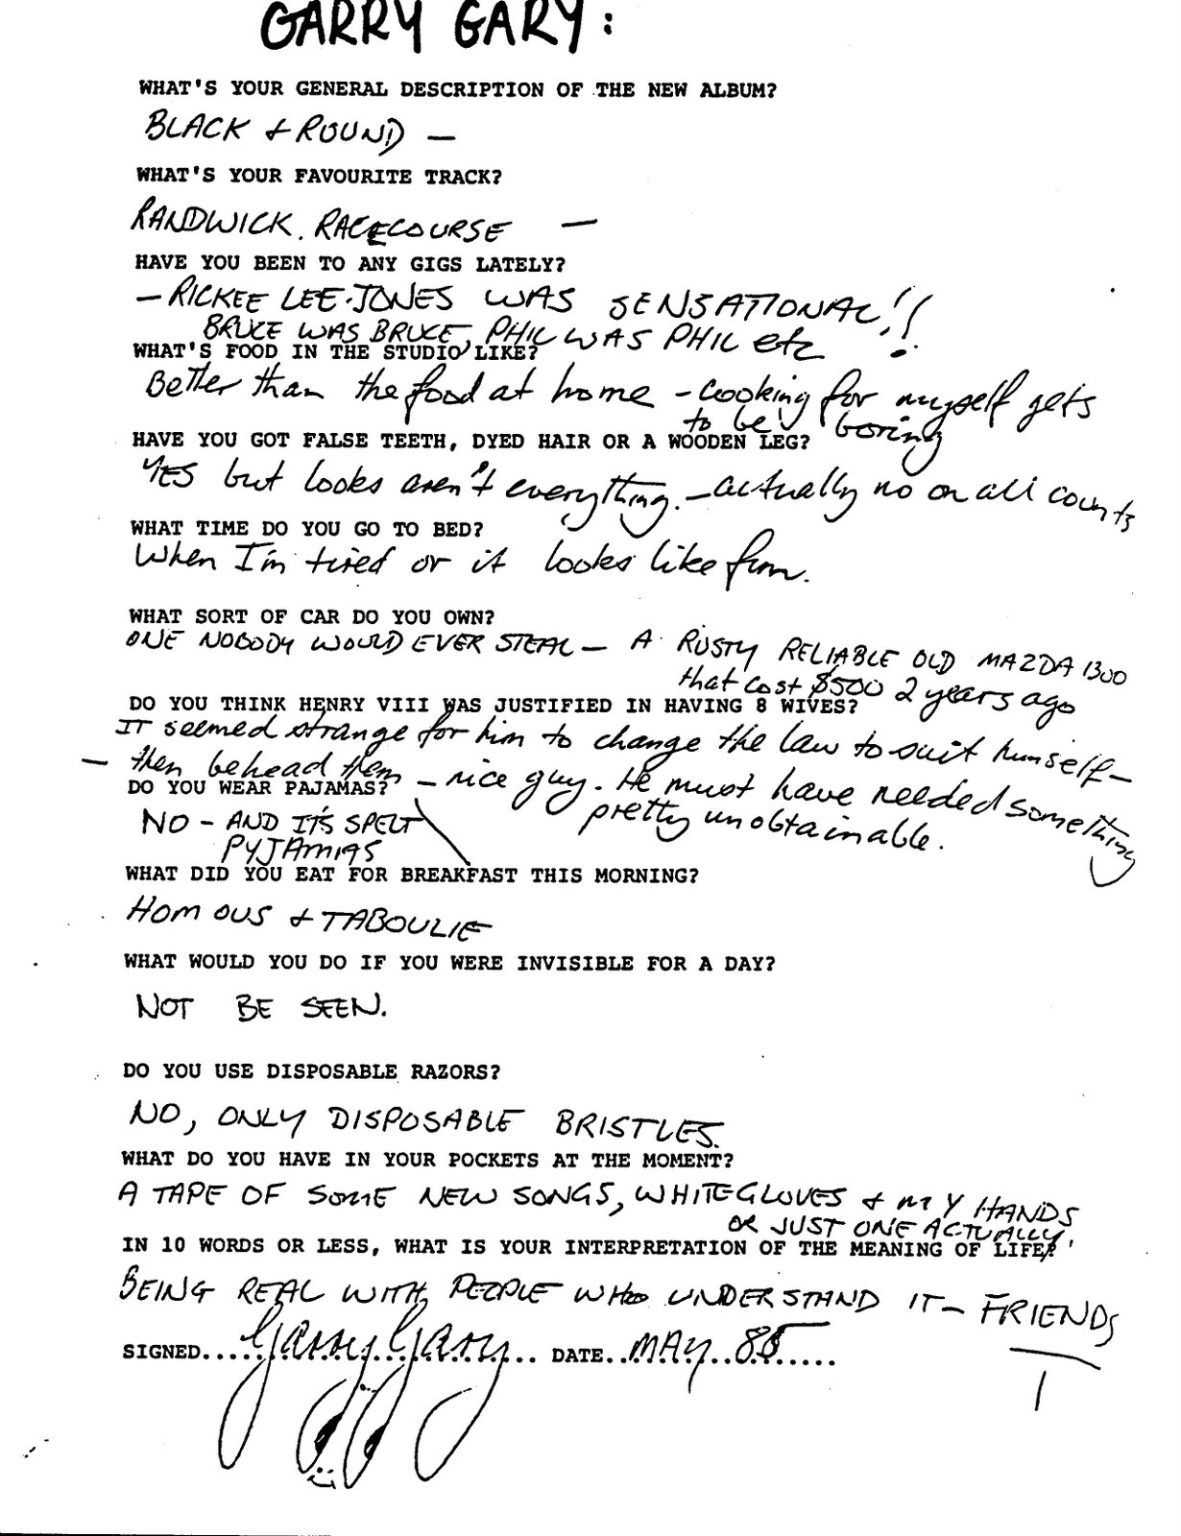 GARRY GARY:
WHAT'S YOUR GENERAL DESCRIPTION OF THE NEW ALBUM?
BLACK + ROUND —
WHAT'S YOUR FAVOURITE TRACK?
RANDWICK. RACECOURSE —
HAVE YOU BEEN TO ANY GIGS LATELY?
— RICKEE LEE-JONES WAS SENSATIONAL!!
BRUCE WAS BRUCE, PHIL WAS PHIL etc
WHAT'S FOOD IN THE STUDIO LIKE?
Better than the food at home - cooking for myself gets
to be boring
HAVE YOU GOT FALSE TEETH, DYED HAIR OR A WOODEN LEG?
YES but looks aren't everything. - actually no on all counts
WHAT TIME DO YOU GO TO BED?
When I'm tired or it looks like fun.
WHAT SORT OF CAR DO YOU OWN?
ONE NOBODY WOULD EVER STEAL — A RUSTY RELIABLE OLD MAZDA 1300
that cost $500 2 years ago
DO YOU THINK HENRY VIII WAS JUSTIFIED IN HAVING 8 WIVES?
IT seemed strange for him to change the law to suit himself -
— then behead them - nice guy. He must have needed something
pretty unobtainable.
DO YOU WEAR PAJAMAS?
NO - AND IT'S SPELT
PYJAMAS
WHAT DID YOU EAT FOR BREAKFAST THIS MORNING?
HOMOUS + TABOULIE
WHAT WOULD YOU DO IF YOU WERE INVISIBLE FOR A DAY?
NOT BE SEEN.
DO YOU USE DISPOSABLE RAZORS?
NO, ONLY DISPOSABLE BRISTLES.
WHAT DO YOU HAVE IN YOUR POCKETS AT THE MOMENT?
A TAPE OF SOME NEW SONGS, WHITE GLOVES + MY HANDS
OR JUST ONE ACTUALLY!
IN 10 WORDS OR LESS, WHAT IS YOUR INTERPRETATION OF THE MEANING OF LIFE?
BEING REAL WITH PEOPLE WHO UNDERSTAND IT — FRIENDS
SIGNED.....Garry Gary... DATE..MAY..85......